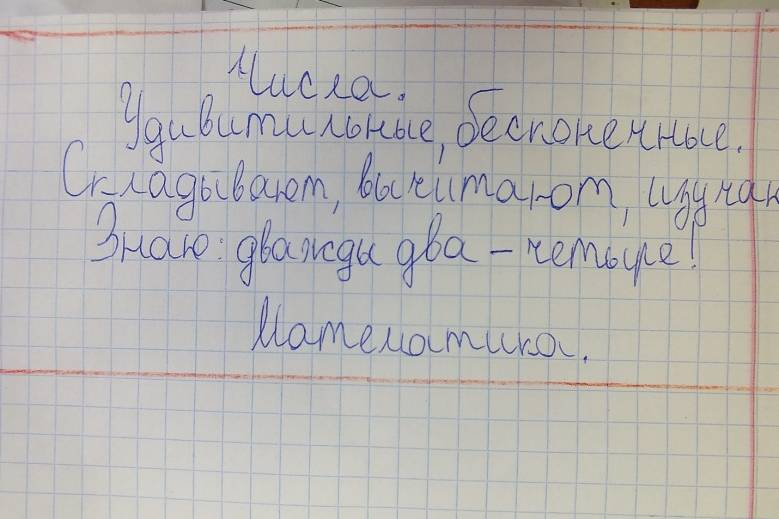 Числа.
Удивитильные, бесконечные.
Складывают, вычитают,
Знаю: дважды два – четыре!
Математика.